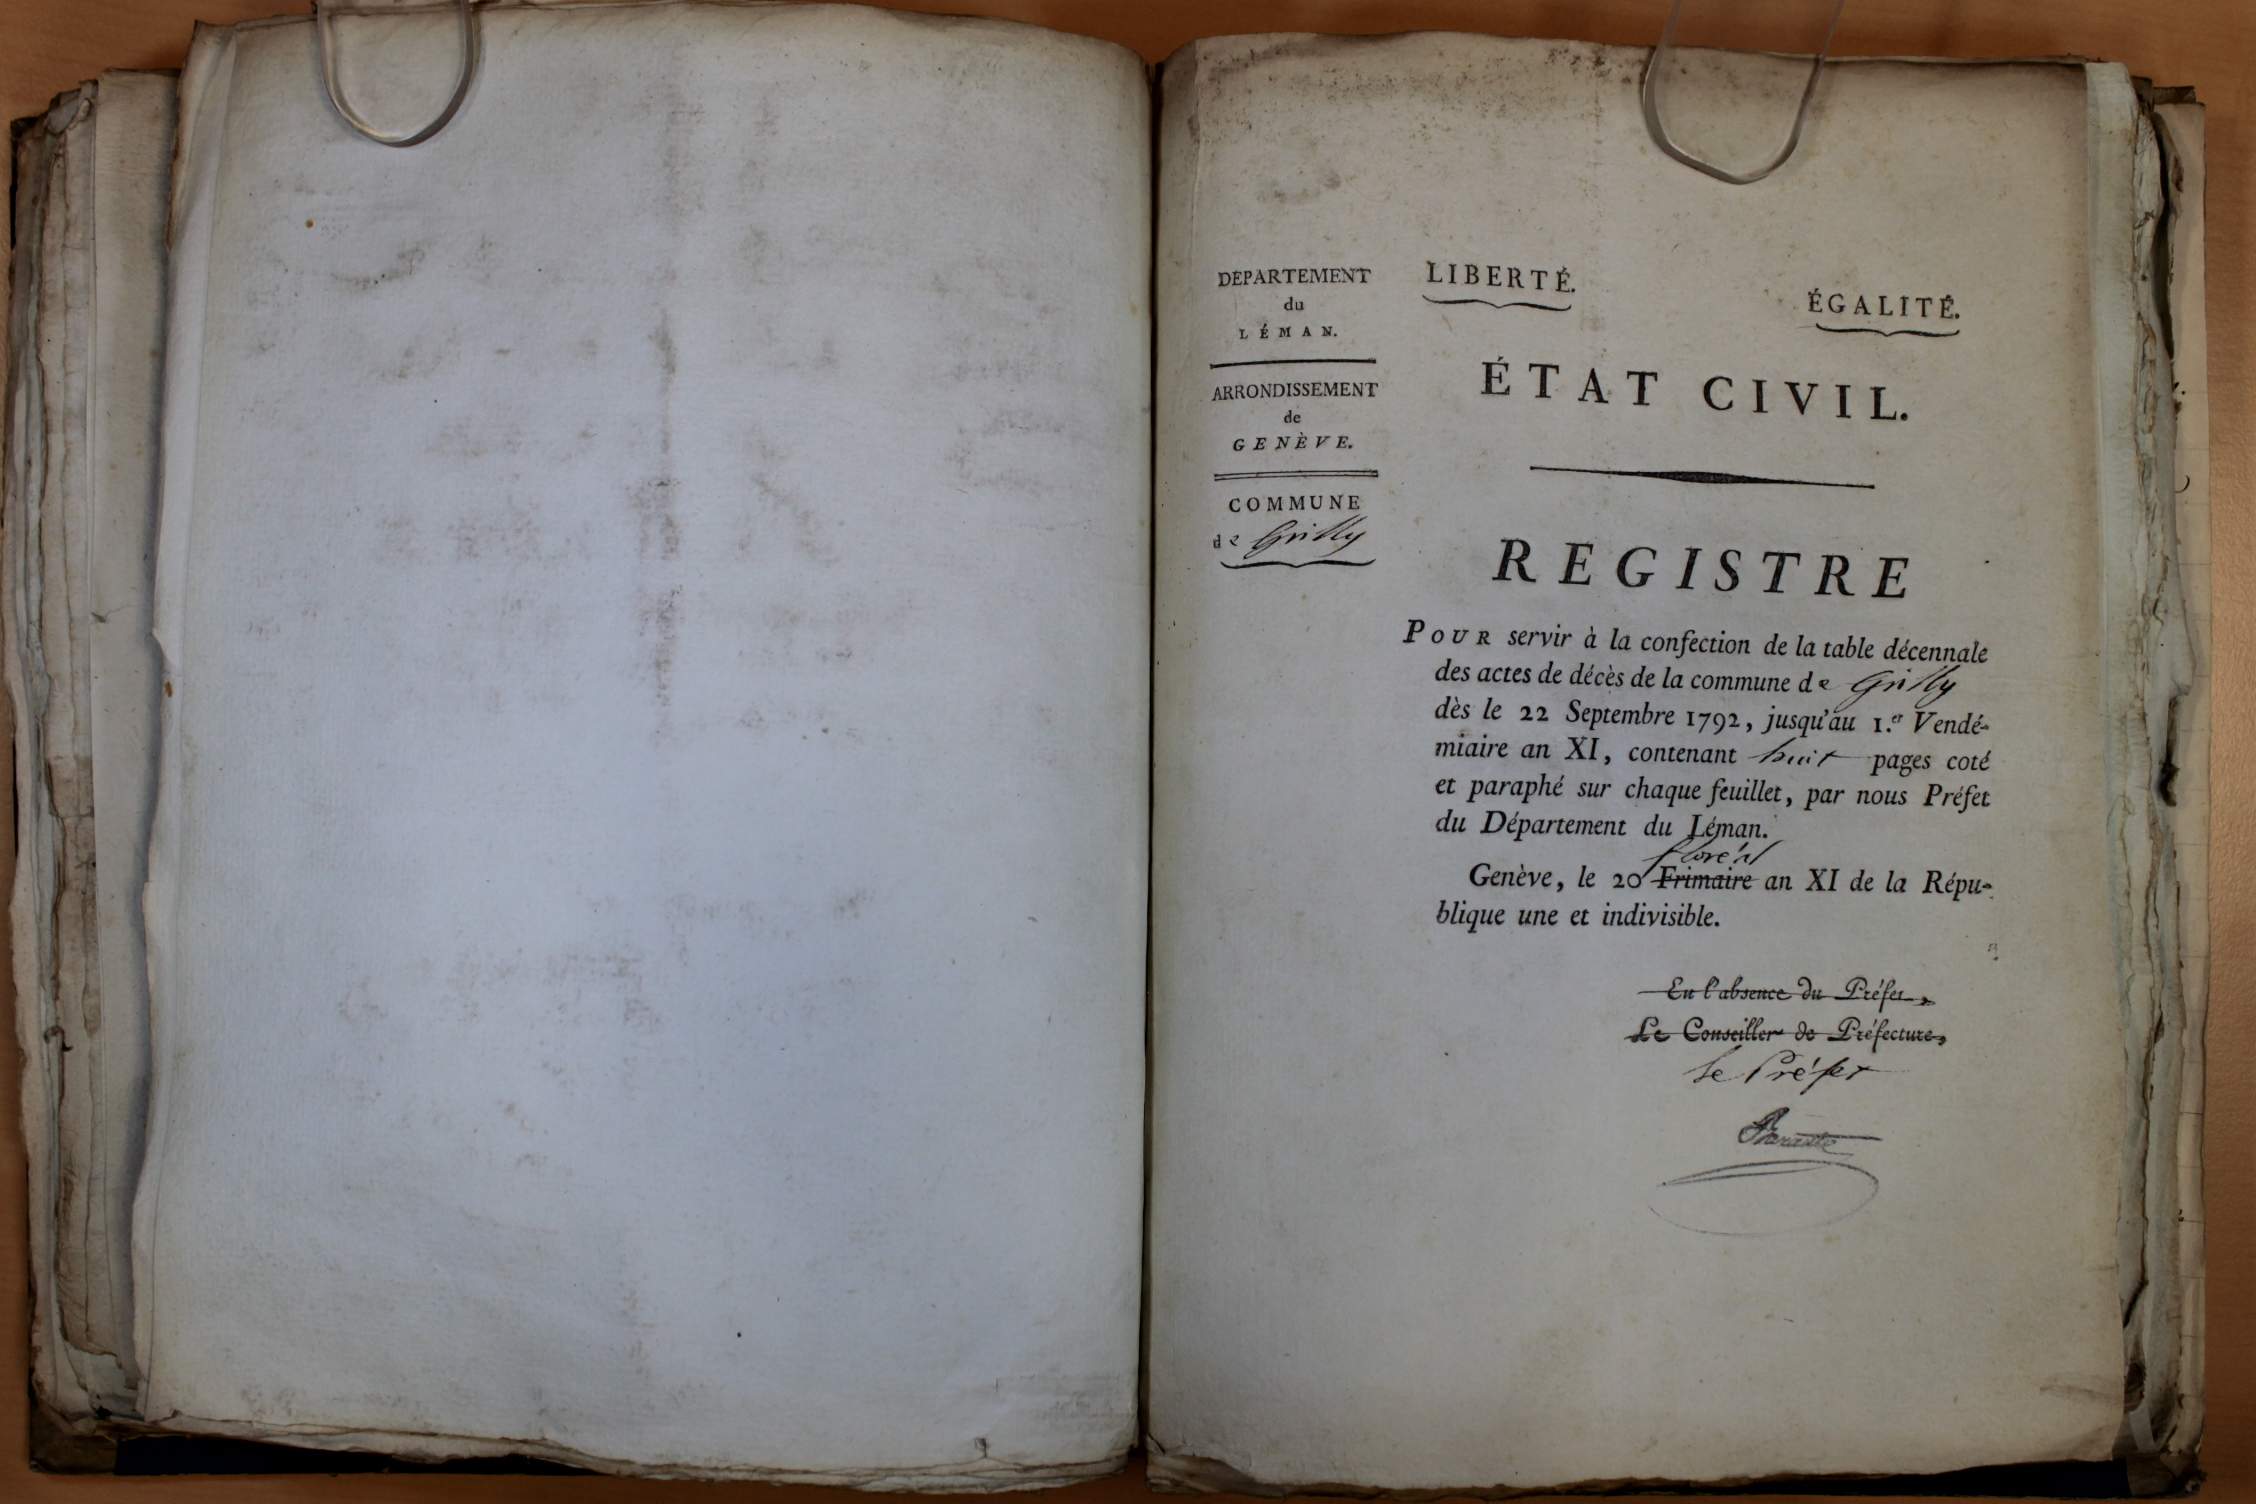 DEPARTEMENT
du
LÉMAN.
ARRONDISSEMENT
de
GENÈVE.
COMMUNE
de Grilly
LIBERTÉ.
ÉGALITÉ.
ÉTAT CIVIL.
REGISTRE
POUR servir à la confection de la table décennale
des actes de décès de la commune de Grilly
dès le 22 Septembre 1792, jusqu'au 1.er Vendé-
miaire an XI, contenant huit pages coté
et paraphé sur chaque feuillet, par nous Préfet
du Département du Léman.
floréal
Genève, le 20 Frimaire an XI de la Répu-
blique une et indivisible.
En l'absence du Préfet,
Le Conseiller de Préfecture,
le Préfet
Barante